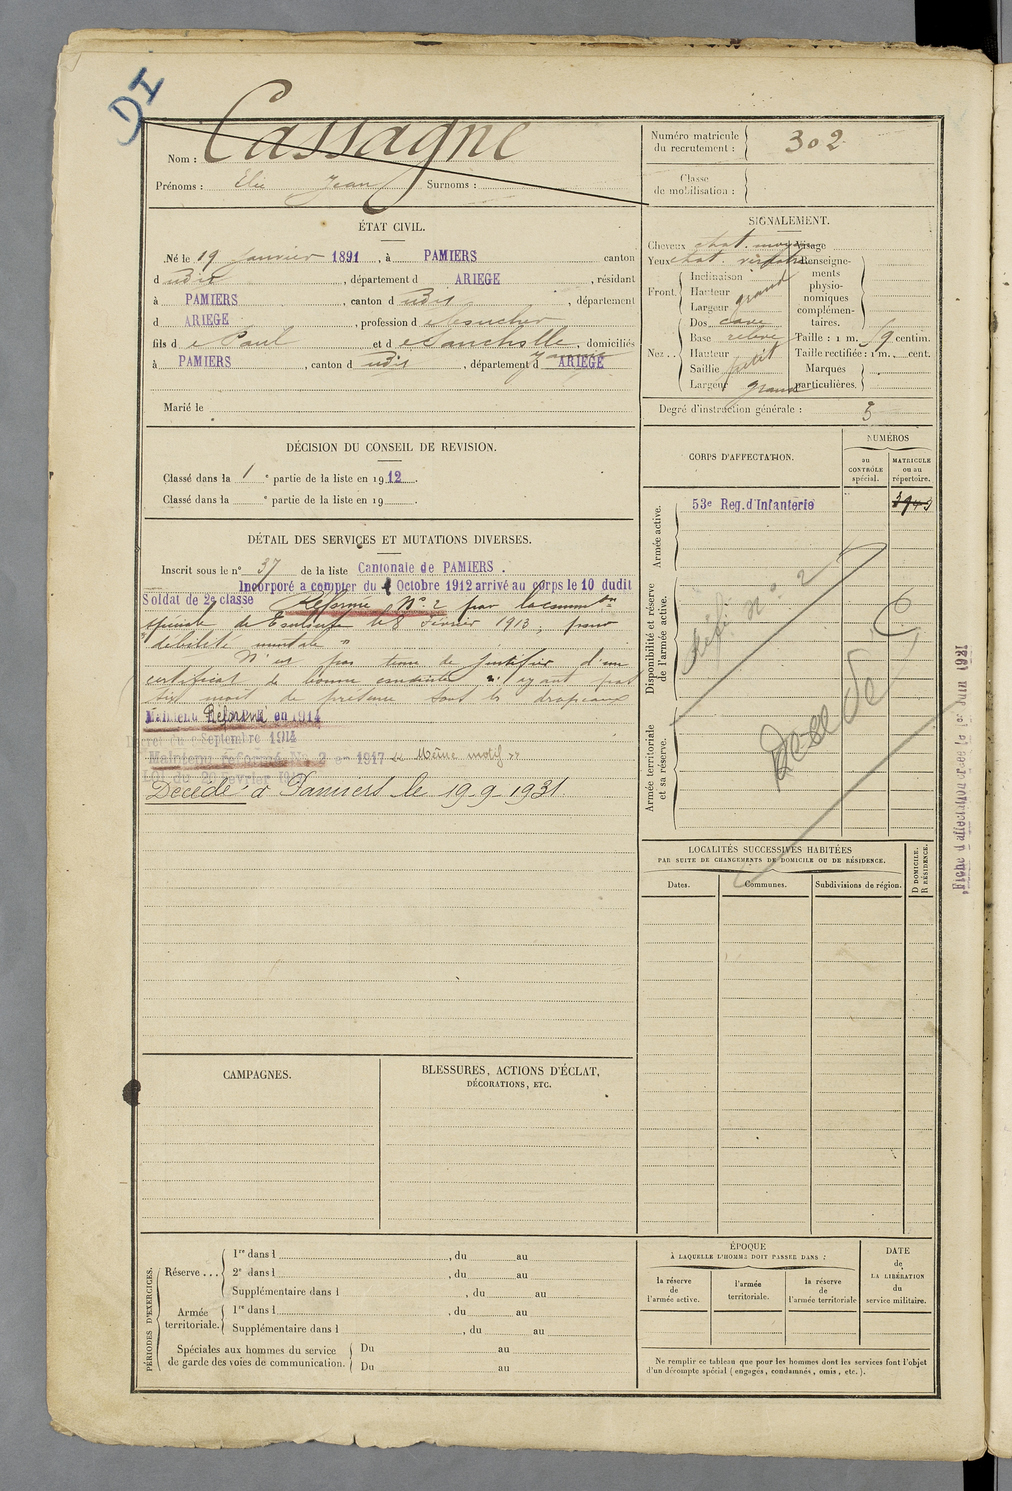 DI
Nom : Cassagne
Prénoms : Elie Jean Surnoms :
Numéro matricule du recrutement : 302
Classe de mobilisation :
ÉTAT CIVIL.
Né le 19 Janvier 1891, à PAMIERS canton
dudit, département d ARIEGE, résidant
à PAMIERS, canton dudit, département
d ARIEGE, profession de
fils de Paul et de, domiciliés
à PAMIERS, canton dudit, département d ARIEGE
Marié le
SIGNALEMENT.
Cheveux chat. Visage
Yeux chat. Renseigne-
Inclinaison ments
Front. Hauteur physio-
Largeur grand nomiques
Dos cave complémen-
taires.
Base relevé Taille : 1 m. 59 centim.
Nez .. Hauteur petit Taille rectifiée : 1 m. cent.
Saillie Marques
Largeur grand particulières.
Degré d'instruction générale : 3
DÉCISION DU CONSEIL DE REVISION.
Classé dans la 1 e partie de la liste en 1912.
Classé dans la e partie de la liste en 19 .
CORPS D'AFFECTATION.
NUMÉROS
au CONTRÔLE spécial.
MATRICULE ou au répertoire.
Armée active.
53e Reg. d'Infanterie
Disponibilité et réserve de l'armée active.
Réf. n° 2
Décédé
Armée territoriale et sa réserve.
DÉTAIL DES SERVICES ET MUTATIONS DIVERSES.
Inscrit sous le n° 37 de la liste Cantonale de PAMIERS.
Incorporé a compter du Octobre 1912 arrivé au corps le 10 dudit
Soldat de 2e classe Réformé N° 2 par la common
spéciale de Toulouse le 8 Février 1913, pour
"débilité mentale"
N'est pas tenu de justifier d'un
certificat de bonne conduite n'ayant pas
six mois de présence sous les drapeaux
Maintenu Réformé en 1914
Décret du Septembre 1914
Maintenu réformé No. 2 en 1917 Même motif
Loi du 20 Février 1917
Décédé à Pamiers le 19 9 1931.
LOCALITÉS SUCCESSIVES HABITÉES
PAR SUITE DE CHANGEMENTS DE DOMICILE OU DE RÉSIDENCE.
Dates.
Communes.
Subdivisions de région.
D DOMICILE. R RÉSIDENCE.
CAMPAGNES.
BLESSURES, ACTIONS D'ÉCLAT,
DÉCORATIONS, ETC.
PÉRIODES D'EXERCICES.
Réserve ...
1re dans l , du au
2e dans l , du au
Supplémentaire dans l , du au
Armée territoriale.
1re dans l , du au
Supplémentaire dans l , du au
Spéciales aux hommes du service Du au
de garde des voies de communication. Du au
ÉPOQUE
À LAQUELLE L'HOMME DOIT PASSER DANS :
la réserve de l'armée active.
l'armée territoriale.
la réserve de l'armée territoriale
DATE
de
LA LIBÉRATION
du
service militaire.
Ne remplir ce tableau que pour les hommes dont les services font l'objet
d'un décompte spécial (engagés, condamnés, omis, etc.).